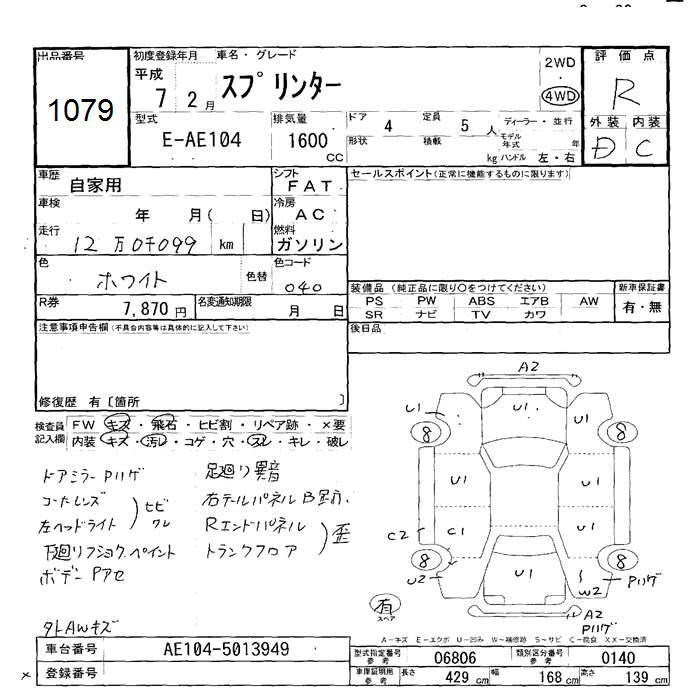 出品番号
1079
初度登録年月 車名・グレード
平成 7 2月 スプリンター
2WD
・
4WD
評価点
R
型式
E-AE104
排気量
1600 CC
ドア 4 定員 5人
形状 積載 kg
ディーラー・並行
モデル年式 年
ハンドル 左・右
外装 内装
D C
車歴
自家用
シフト
FAT
セールスポイント(正常に機能するものに限ります)
車検 年 月( 日)
冷房
AC
走行
12万0千099 km
燃料
ガソリン
色
ホワイト 色替
色コード
040
R券
7,870円
名変通知期限
月 日
装備品 (純正品に限り○をつけてください)
PS PW ABS エアB AW
SR ナビ TV カワ
新車保証書
有・無
注意事項申告欄(不具合内容等は具体的に記入して下さい)
後日品
修復歴 有〔箇所 〕
検査員記入欄
FW キズ・飛石・ヒビ割・リペア跡・×要
内装 キズ・汚レ・コゲ・穴・スレ・キレ・破レ
ドアミラーPハゲ
コーナーレンズ
左ヘッドライト
ヒビワレ
下廻リフショクペイント
ボデーPアセ
足廻リ異音
右テールパネルB
Rエンドパネル
トランクフロア
歪
外AWキズ
A2
U1 U1 U1
8 8
U1 U1
C2 C1 U1
8 8
U2 U1 W2 Pハゲ
有
スペア
A2
Pハゲ
A-キズ E-エクボ U-凹み W-補修跡 S-サビ C-腐食 XX-交換済
車台番号 AE104-5013949
登録番号
型式指定番号 参考 06806
類別区分番号 参考 0140
車庫証明用 参考 長さ 429cm 幅 168cm 高さ 139cm
×